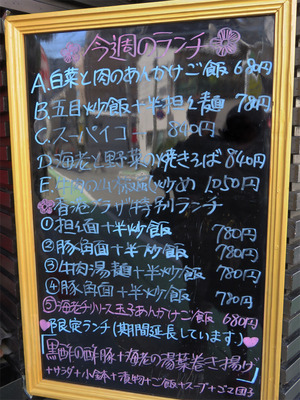 今週のランチ
A.白菜と肉のあんかけご飯 680円
B.五目炒飯+半担々麺 780円
C.スーパイコ 840円
D.海老と野菜の焼きそば 840円
E.牛肉の 炒め 1050円
香港プラザ特別ランチ
①担々面+半炒飯 780円
②豚角面+半炒飯 780円
③牛肉湯麺+半炒飯 780円
④豚面+半炒飯 780円
⑤海老チリソース玉子あんかけご飯 680円
限定ランチ(期間延長しています)
黒酢の酢豚+海老の湯葉巻き揚げ
+サラダ+小鉢+漬物+ご飯+スープ+ゴマ団子